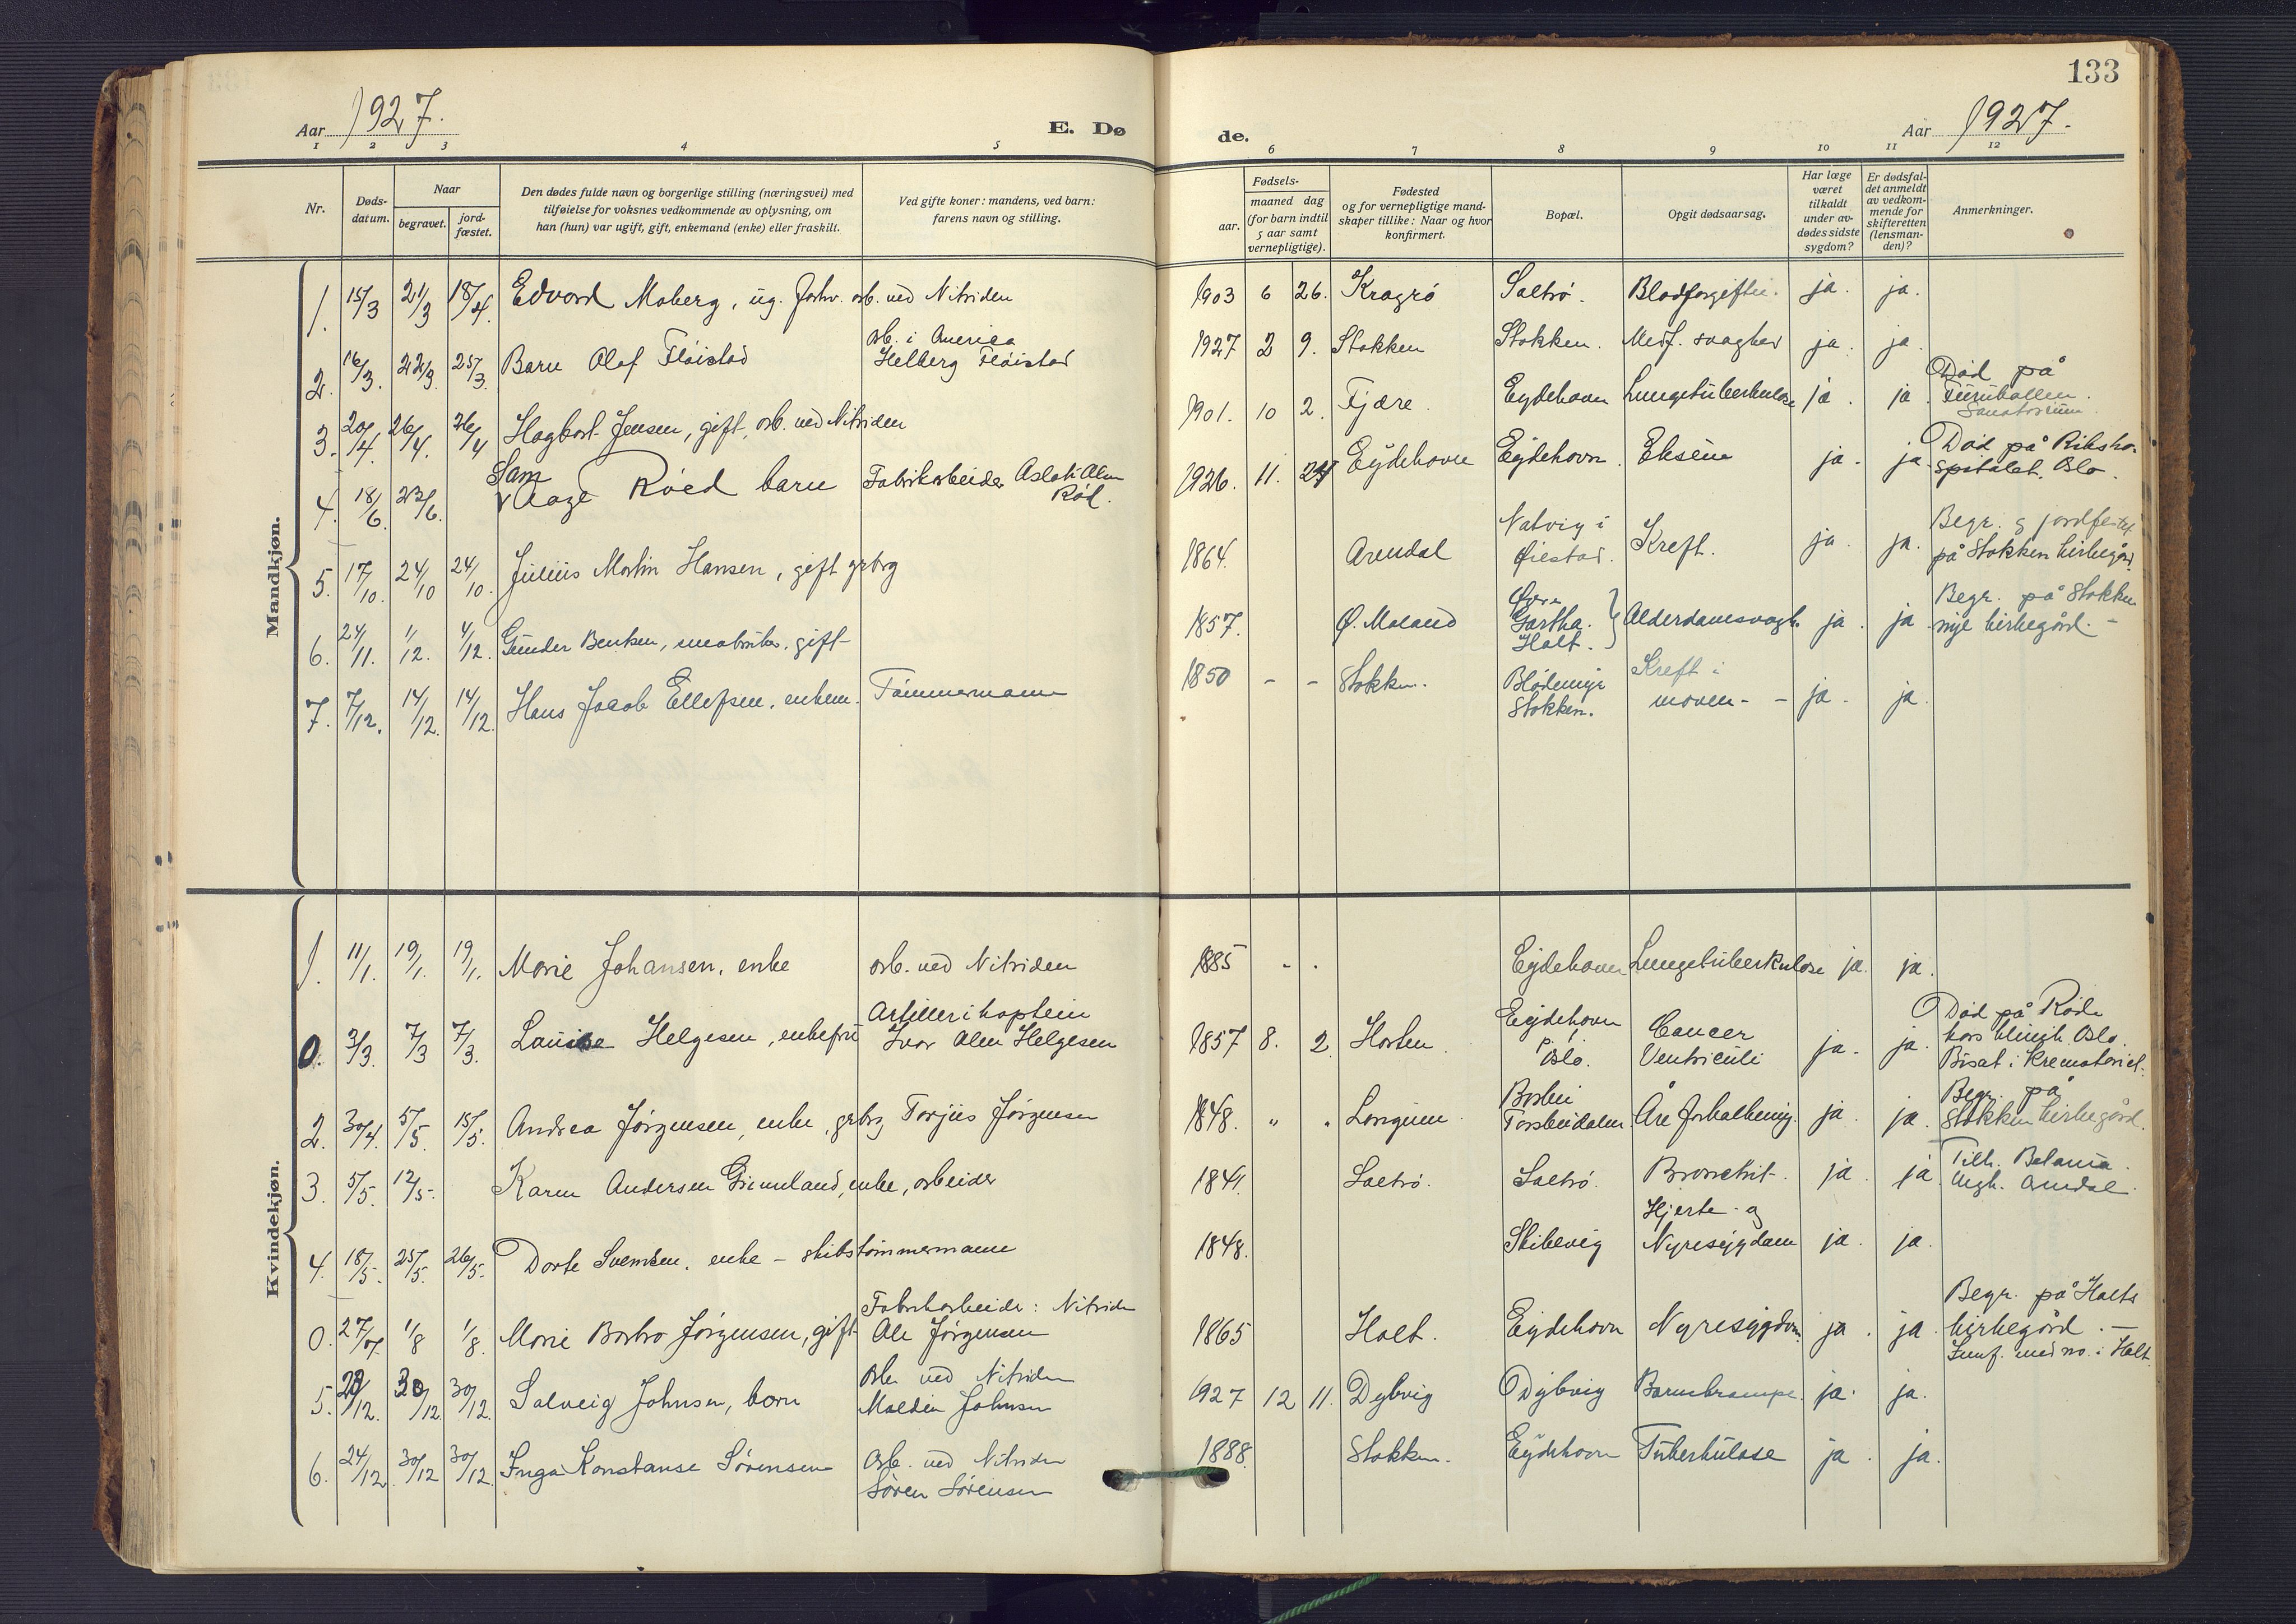 133
Aar 1927. E. Dø de. Aar 1927.
1 2 3 4 5 6 7 8 9 10 11 12
Nr.
Døds-
datum.
Naar
begravet.
jord-
fæstet.
Den dødes fulde navn og borgerlige stilling (næringsvei) med
tilføielse for voksnes vedkommende av oplysning, om
han (hun) var ugift, gift, enkemand (enke) eller fraskilt.
Ved gifte koner: mandens, ved barn:
farens navn og stilling.
Fødsels-
aar.
maaned dag
(for barn indtil
5 aar samt
vernepligtige).
Fødested
og for vernepligtige mand-
skaper tillike: Naar og hvor
konfirmert.
Bopæl.
Opgit dødsaarsag.
Har læge
været
tilkaldt
under av-
dødes sidste
sygdom?
Er dødsfal-
det anmeldt
av vedkom-
mende for
skifteretten
(lensman-
den)?
Anmerkninger.
Mandkjøn.
1. 15/3 21/3 18/4. Edvard Moberg, ug. forhv. arb. ved Nitriden 1903 6 26. Kragrö Saltrö. Blodforgiftn. ja. ja.
arb. i America
2. 16/3. 22/3 25/3. Barn Olaf Flöistad Helberg Flöistad 1927 2 9. Stokken Stokken. Medf. svaghed ja. ja.
3. 20/4. 26/4. 26/4 Hagbart Jensen, gift, arb. ved Nitriden 1901. 10 2. Fjære. Eydehavn Lungetuberkulose ja. ja.
Död på
Furukollen.
Sanatorium.
Sam
4. 18/6. 23/6. Aage Röed barn Fabrikarbeider Aslak Alm
Röd.
1926. 11. 24 Eydehavn Eydehavn. Eksem ja. ja
Död på Riksho-
spitalet. Oslo.
5. 17/10. 24/10 24/10. Julius Martin Hansen, gift grbrg 1864. Arendal
Natvig i
Øiestad.
Kreft. ja. ja.
Begr. g jordfestet
på Stokken kirkegård.
6. 24/11. 1/12. 4/12. Gunder Bentsen, smabruker, gift 1857. Ø. Moland
Øvre
Gartha.
Holt.
Alderdomssvagh. ja. ja
Begr. på Stokken
nye kirkegård. -
7. 7/12. 14/12. 14/12. Hans Jacob Ellefsen. enkem. Tömmermann 1850 - - Stokken.
Blödemyr
Stokken.
Kreft i
maven - - ja. ja.
Kvindekjøn.
1. 11/1. 19/1. 19/1. Marie Johansen, enke arb. ved Nitriden 1885 - . Eydehavn Lungetuberkulose ja. ja.
0. 3/3. 7/3 7/3. Lauise Helgesen, enkefru
Artillerikaptein
Ivar Alm Helgesen
1857 8. 2 Horten.
Eydehavn
p. t.
Oslo.
Cancer
Ventriculi
ja. ja.
Död på Röde
kors klinik. Oslo.
Bisat i Krematoriet.
2. 30/4. 5/5. 15/5. Andrea Jörgensen, enke, grbrg Torjus Jörgensen 1848. " . Longum.
Torsbudalen Åreforkalkning. ja. ja.
Begr. på
Stokken kirkegård.
3. 5/5. 12/5. Karen Andersen Grimland, enke, arbeider 1841. Saltrö. Saltrö. Bronckit. ja. ja.
Tilh. Betania
mgh. Arendal.
4. 18/5. 25/5. 26/5. Dorte Svendsen. enke - skibstömmermann 1848. Skilevig
Hjerte- og
Nyresygdom ja. ja.
0. 27/7. 1/8 1/8. Marie Barbro Jörgensen, gift
Fabrikarbeider: Nitriden
Ole Jörgensen
1865 Holt. Eydehavn Nyresygdom. ja. ja.
Begr. på Holts
kirkegård. -
Jmnf. med no. i Holt.
5. 29/12. 30/12. 30/12. Salveig Johnsen, barn
Arb. ved Nitriden
Johnsen
1927 12 11. Dybvig Dybvig Barnekrampe. ja. ja.
6. 24/12. 30/12 30/12. Inga Konstanse Sörensen
Arb. ved Nitriden
Sören Sörensen
1888. Stokken. Eydehavn Tuberkulose ja. ja.